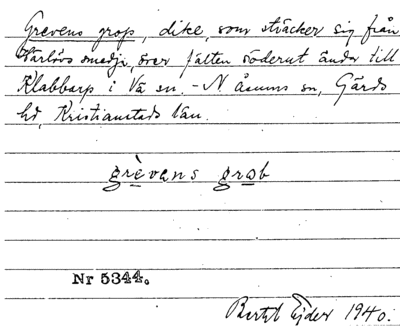 Grevens grop, dike, som sträcker sig från
Härlövs smedja, över fälten söderut ända till
Klabbarp i Vä sn. – N Åsums sn, Gärds
hd, Kristianstads län.
grèvens grob
Nr 5344.
Bertil Ejder 1940.